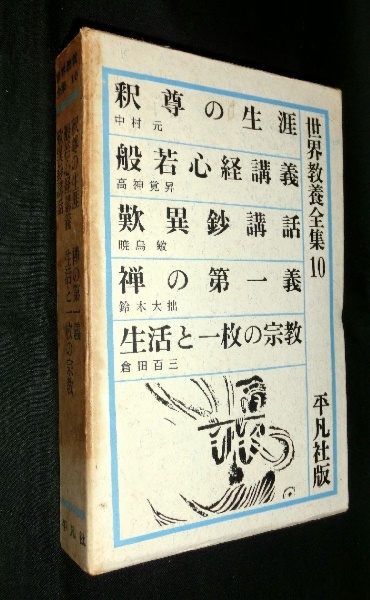 世界教養全集10
釈尊の生涯
中村元
般若心経講義
高神覚昇
歎異鈔講話
暁烏敏
禅の第一義
鈴木大拙
生活と一枚の宗教
倉田百三
平凡社版
世界教養全集 10
釈尊の生涯
般若心経講義
歎異鈔講話
禅の第一義
生活と一枚の宗教
平凡社